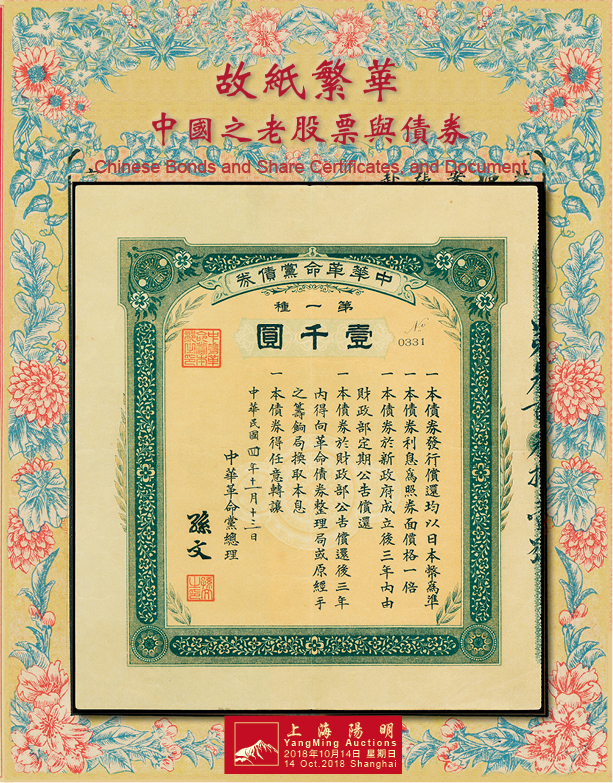 故紙繁華
中國之老股票與債券
Chinese Bonds and Share Certificates, and Document
中華革命黨債券
第一種
壹千圓
No
0331
一本債券發行償還均以日本幣爲準
一本債券利息爲照券面價格一倍
一本債券於新政府成立後三年內由
財政部定期公告償還
一本債券於財政部公告償還後三年
內得向革命債券整理局或原經手
之籌餉局換取本息
一本債券得任意轉讓
中華民國四年十一月十三日
中華革命黨總理
孫文
上海陽明
YangMing Auctions
2018年10月14日 星期日
14 Oct.2018 Shanghai